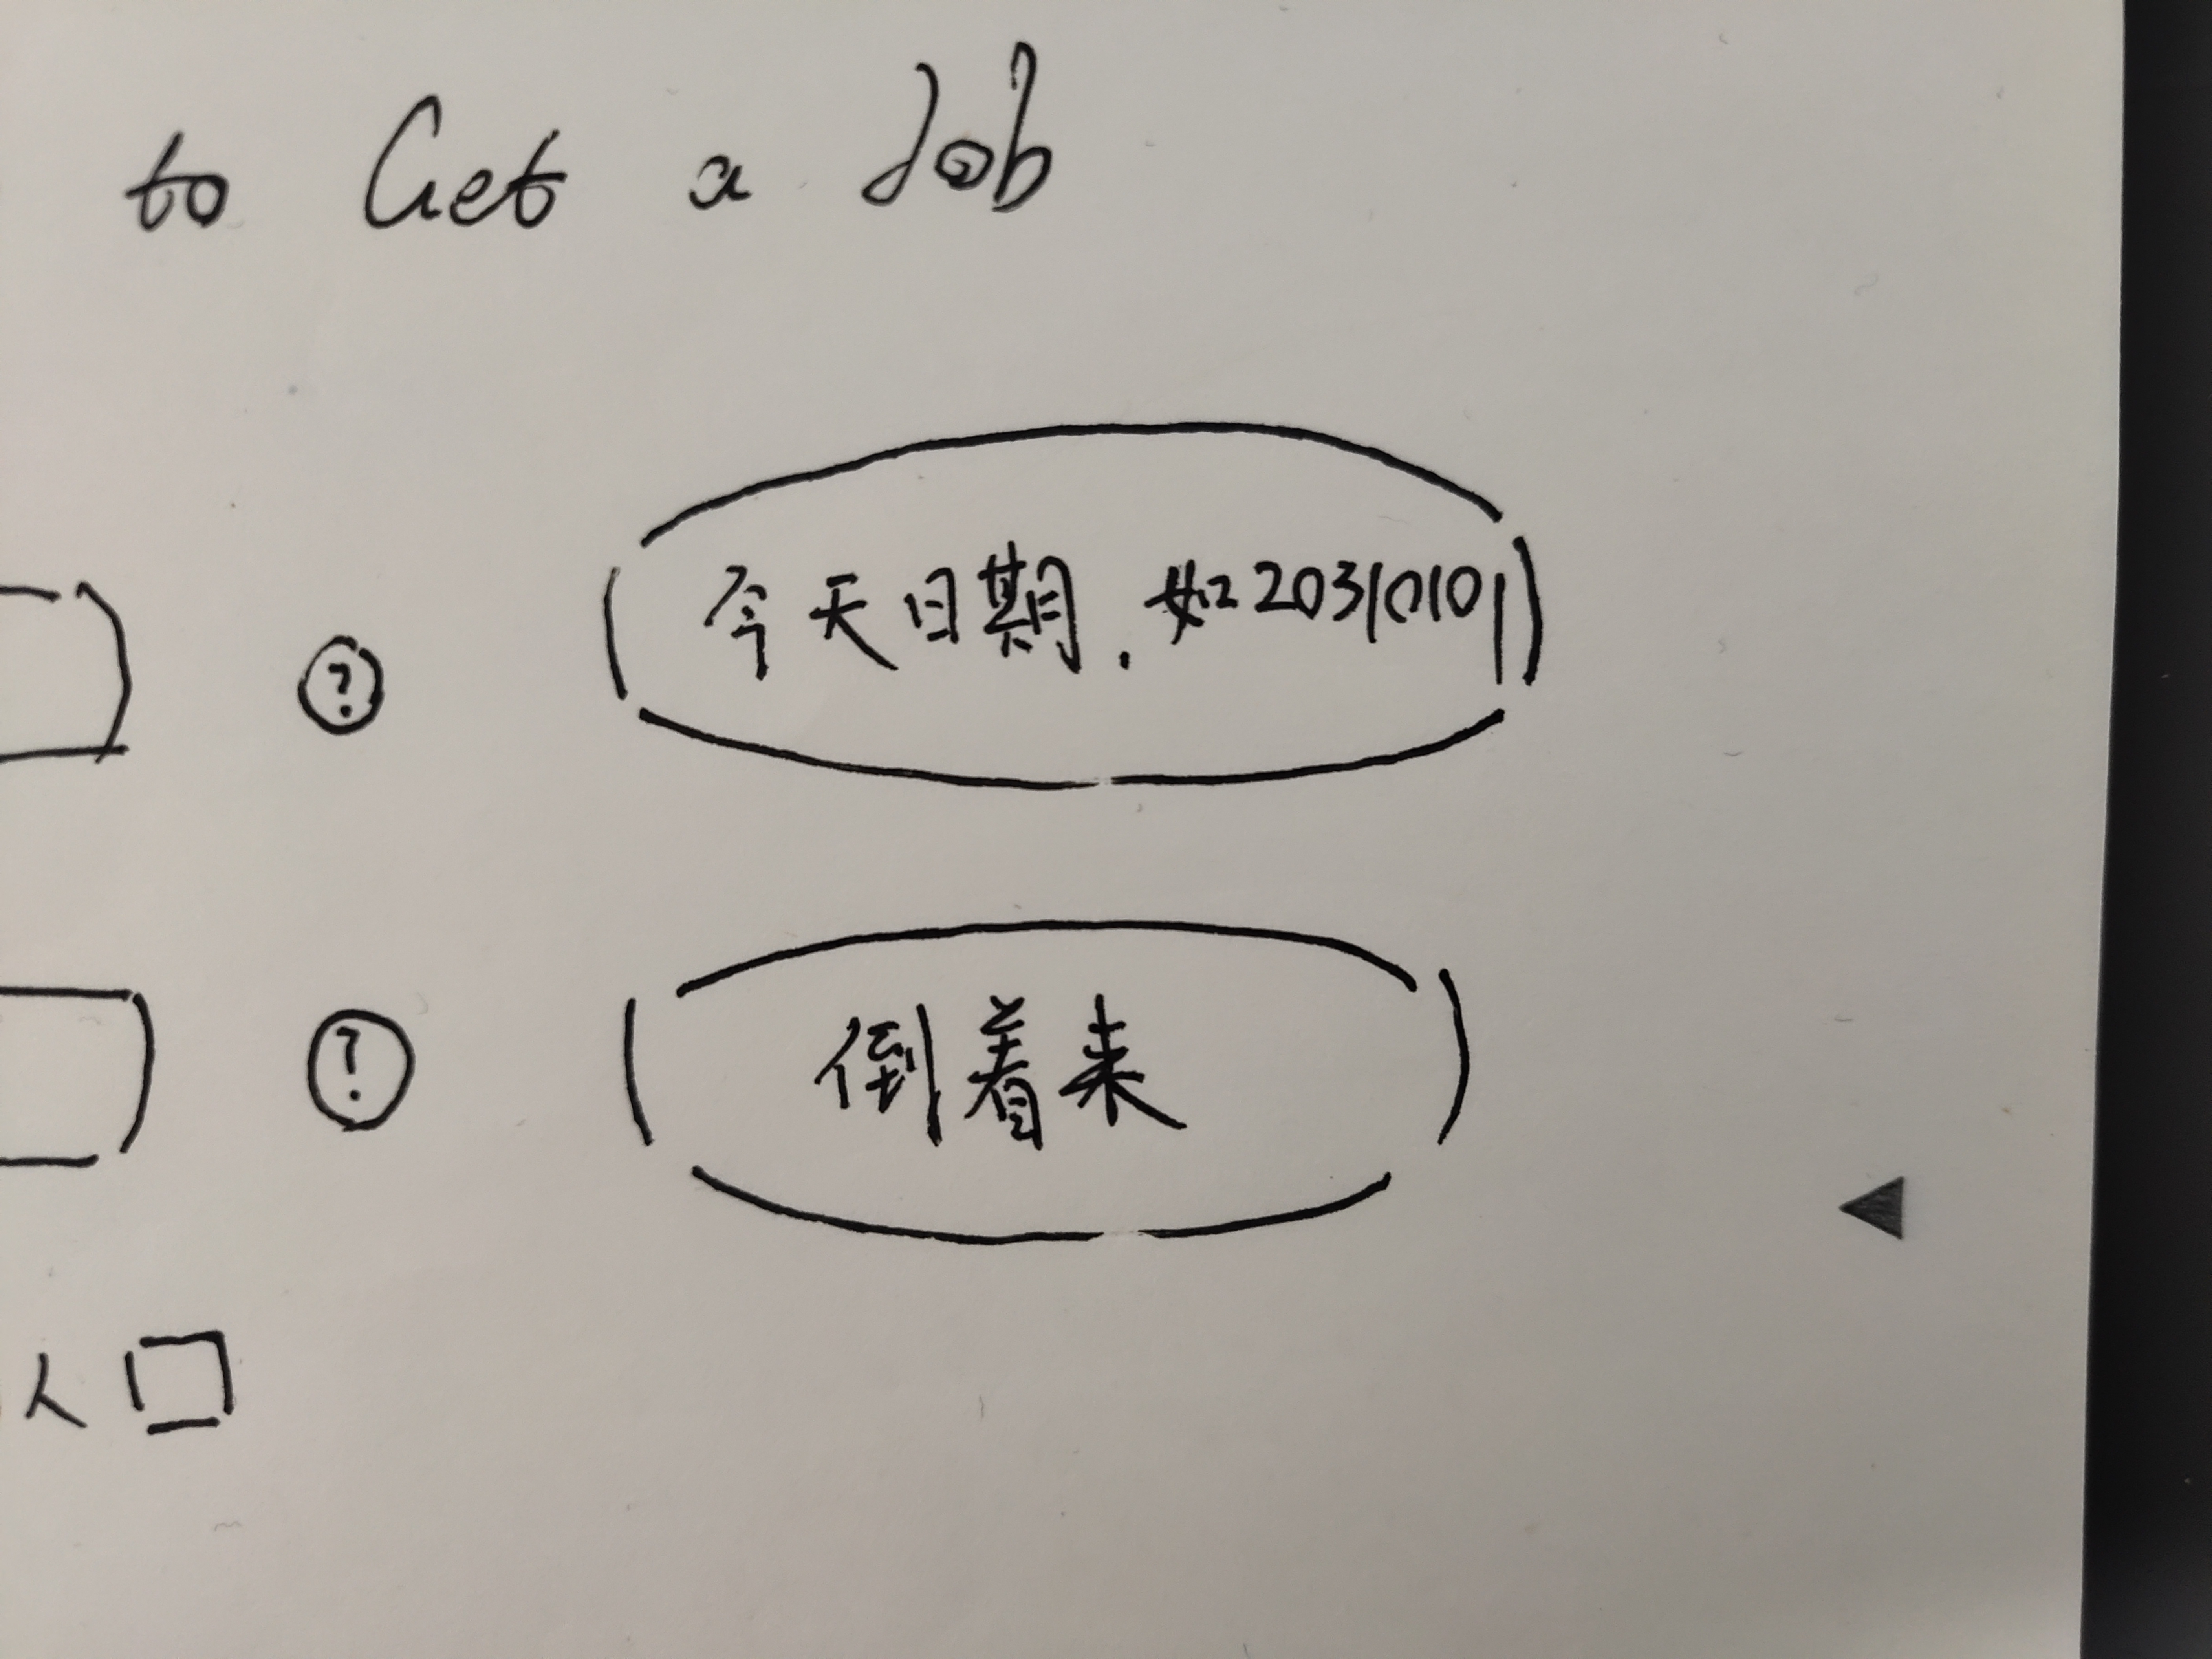 to Get a Job
? 今天日期.如20310101
? 倒着来
入口